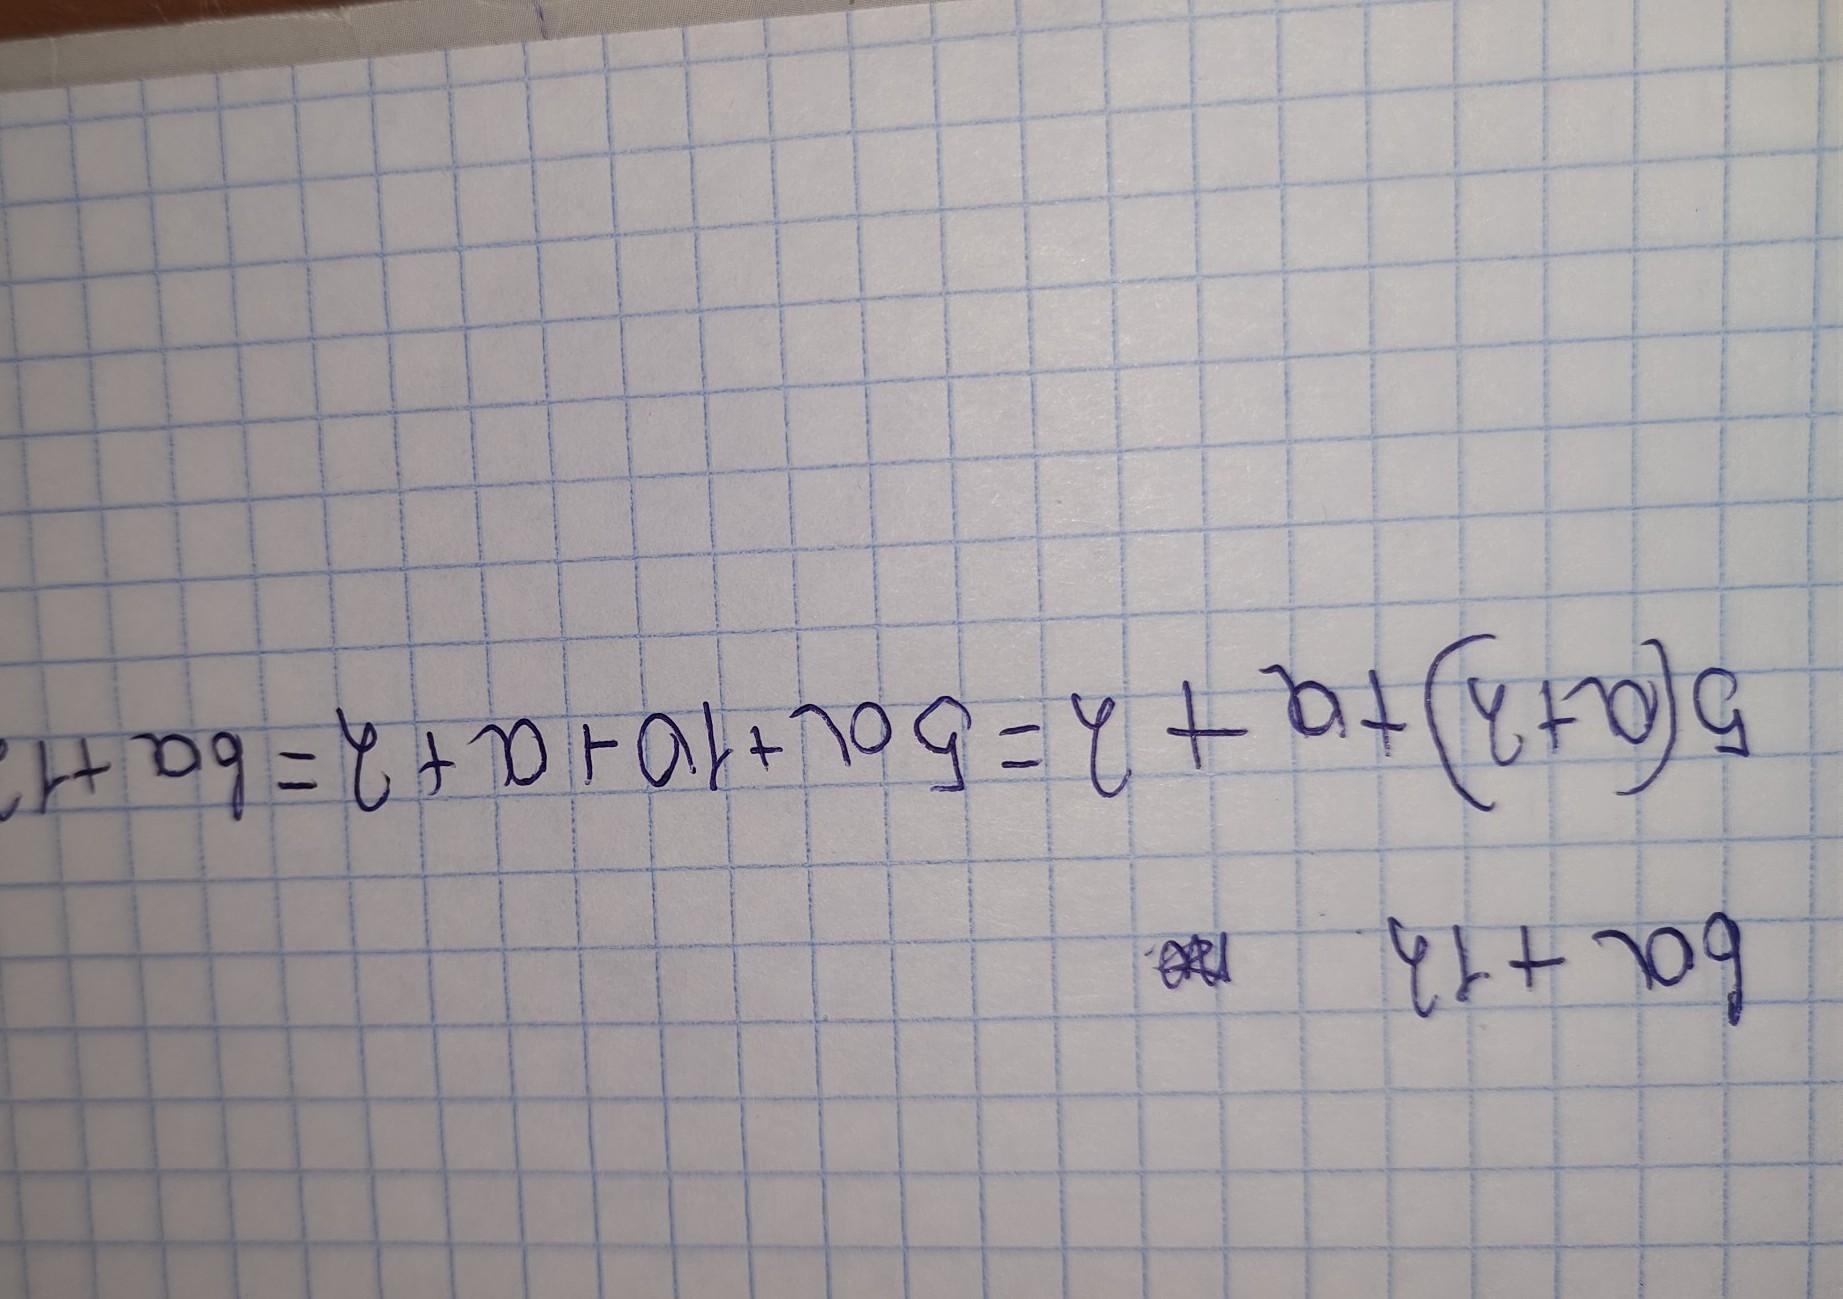 6a + 12
5(a+2)+a + 2 = 5a+10+a+2=6a+12